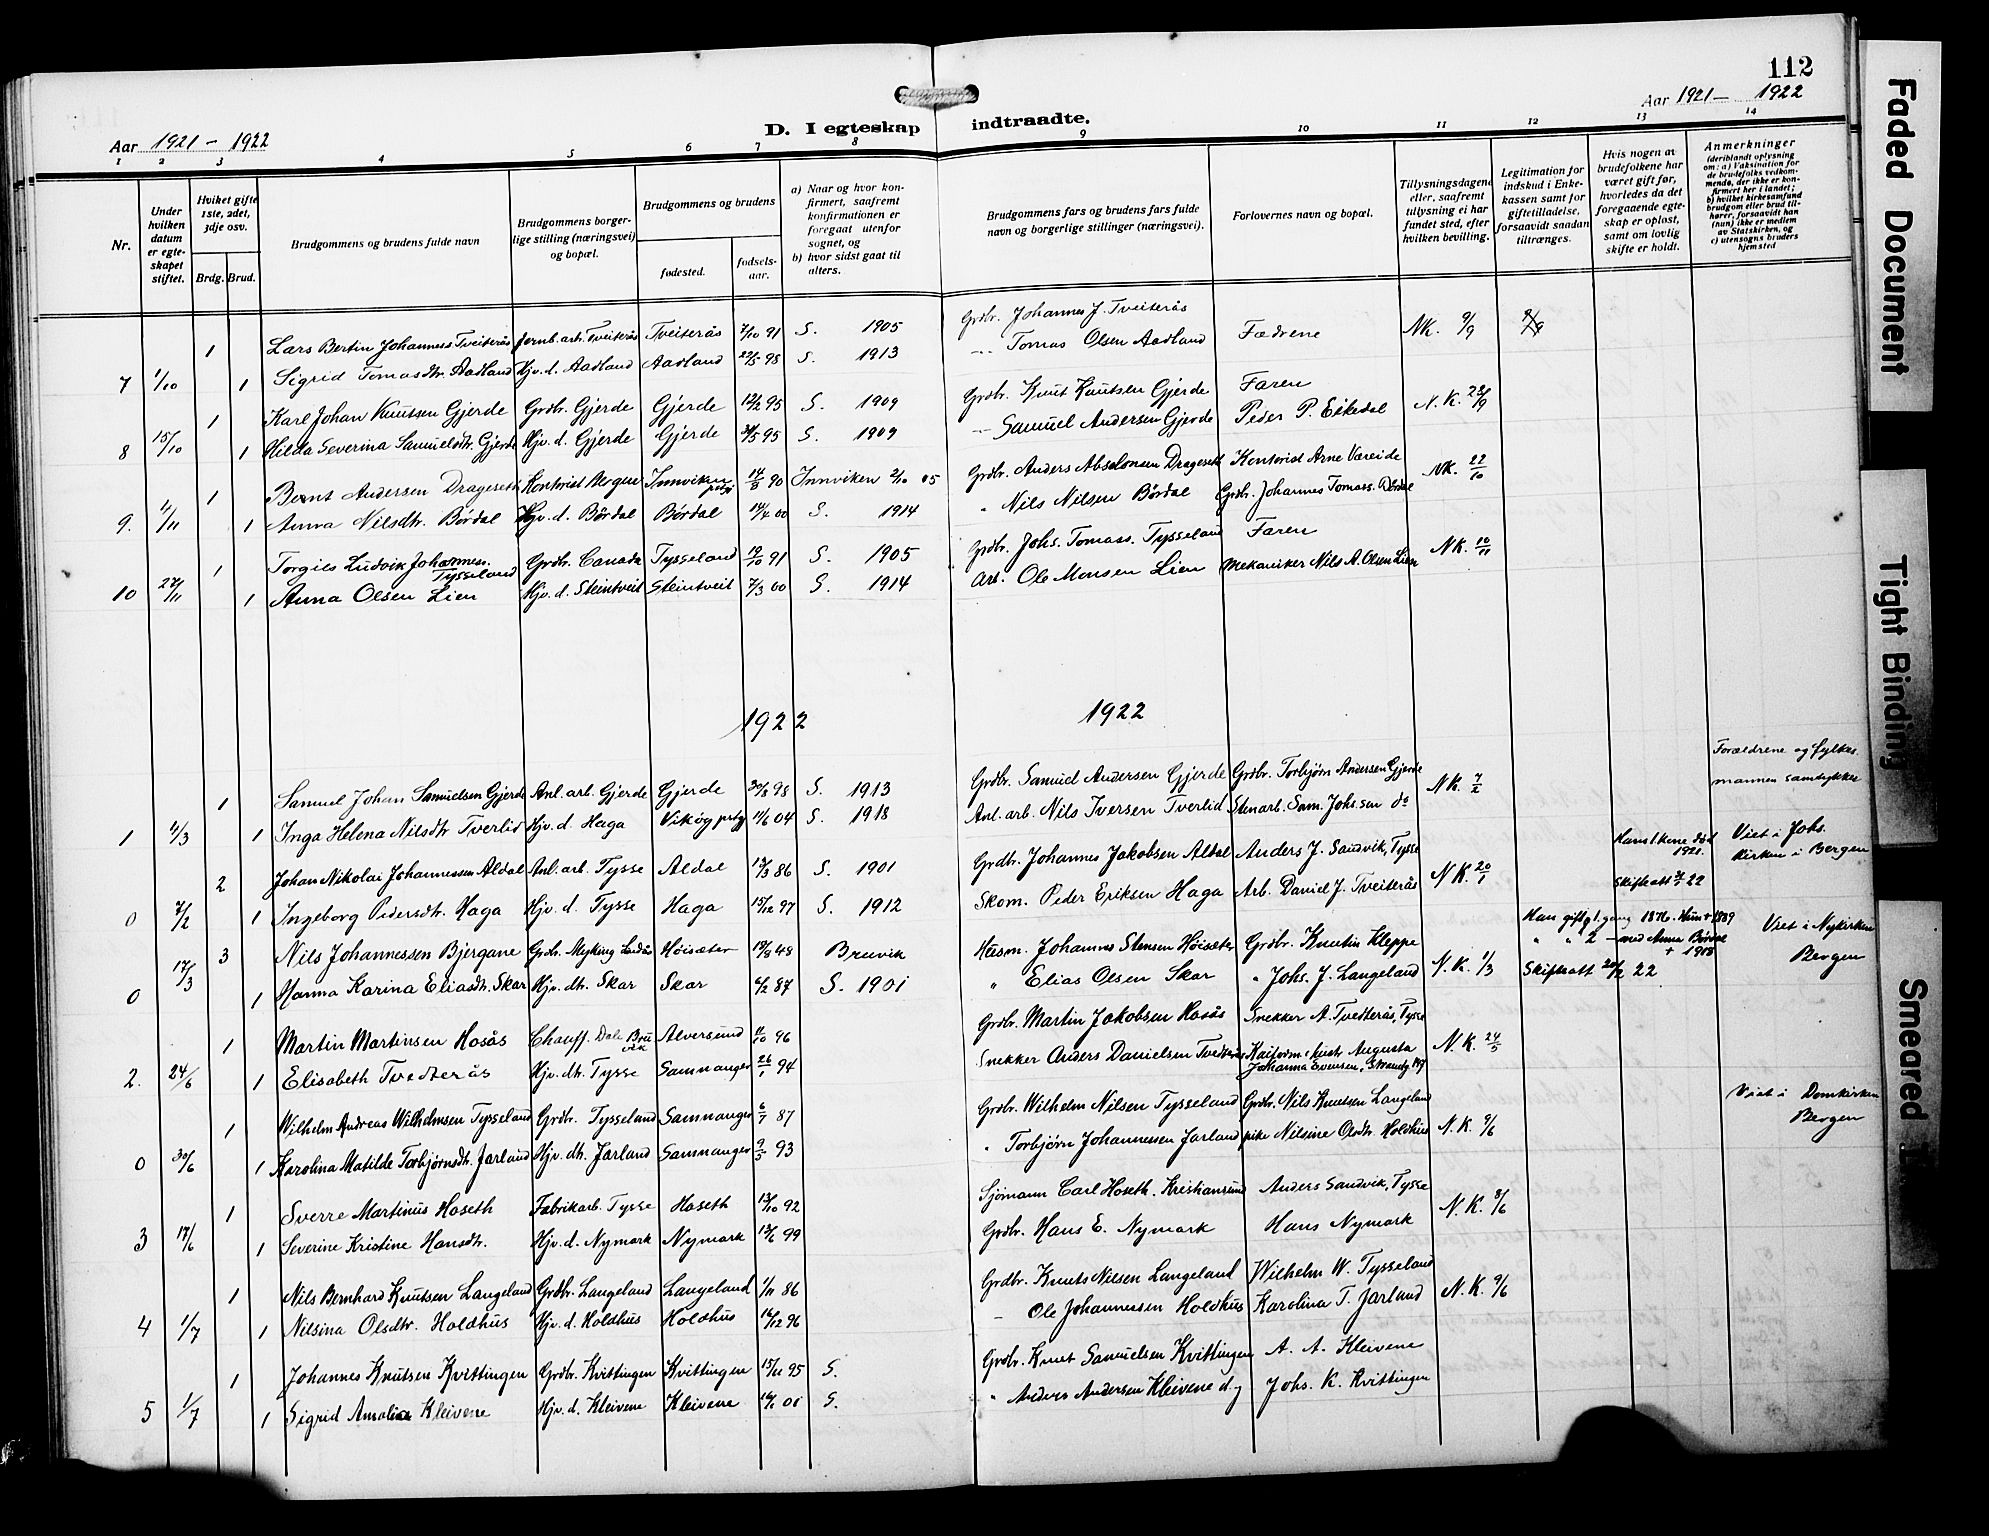 112
Aar 1921 - 1922
D. I egteskap indtraadte.
Aar 1921 - 1922
1 2 3 4 5 6 7 8 9 10 11 12 13 14
Nr.
Under hvilken datum er egteskapet stiftet.
Hviket gifte 1ste, 2det, 3dje osv.
Brdg. Brud.
Brudgommens og brudens fulde navn
Brudgommens borgerlige stilling (næringsvei) og bopæl.
Brudgommens og brudens
fødested.
fødselsaar.
a) Naar og hvor konfirmert, saafremt konfirmationen er foregaat utenfor sognet, og
b) hvor sidst gaat til alters.
Brudgommens fars og brudens fars fulde navn og borgerlige stillinger (næringsvei).
Forlovernes navn og bopæl.
Tillysningsdagene eller, saafremt tillysning ei har fundet sted, efter hvilken bevilling.
Legitimation for indskud i Enkekassen samt for giftetilladelse, forsaavidt saadan tiltrænges.
Hvis nogen av brudefolkene har været gift før, hvorledes da det foregaaende egteskap er opløst, samt om lovlig skifte er holdt.
Anmerkninger
(deriblandt oplysning om: a) Vaksination for de brudefolks vedkommende, der ikke er konfirmert her i landet; b) hvilket kirkesamfund brudgom eller brud tilhører, forsaavidt han (hun) ikke er medlem av Statskirken, og c) utensogns bruders hjemsted
1 Lars Bertin Johanness Tveiterås Jernb. arb. Tveiterås Tveiterås 7/10 91 S. 1905 Grdbr. Johannes J. Tveiterås Fædrene NK. 9/9
7 1/10 1 Sigrid Tomasdtr. Aadland Hjv. d. Aadland Aadland 22/5 98 S. 1913 -- Tomas Olsen Aadland
1 Karl Johan Knutsen Gjerde Grdbr. Gjerde Gjerde 12/2 95 S. 1909 Grdbr. Knut Knutsen Gjerde Faren N.K. 23/9
8 15/10 1 Hilda Severina Samuelsdtr. Gjerde Hjv. d. Gjerde Gjerde 31/5 95 S. 1909 -- Samuel Andersen Gjerde Peder P. Eikedal
1 Bernt Andersen Drageseth Kontorist Bergen Innviken prtgj 14/8 90 Innviken 2/10 05 Grdbr. Anders Absalonsen Drageseth Kontorist Arne Vareide NK. 22/10
9. 11/11 1 Anna Nilsdtr. Bördal Hjv. d. Bördal Bördal 14/4 00 S. 1914 " Nils Nilsen Bördal Grdbr. Johannes Tomass. Bördal
1 Torgils Ludvik Johannesn. Tysseland Grdbr. Canada Tysseland 19/10 91 S. 1905 Grdbr. Johs. Tomass. Tysseland Faren NK. 10/11
10 27/11 1 Anna Olsen Lien Hjv. d. Steintveit Steintveit 7/3 00 S. 1914 Arb. Ole Monsen Lien Mekaniker Nils A. Olsen Lien
1922 1922
1 Samuel Johan Samuelsen Gjerde Anl. arb. Gjerde Gjerde 30/8 98 S. 1913 Grdbr. Samuel Andersen Gjerde Grdbr. Torbjørn Andersen Gjerde NK. 7/2 Forældrene og fylkesmannen samtykker
1 11/3 1 Inga Helena Nilsdtr Tverlid Hjv. d. Haga Vikøy prtgj 11/6 04 S. 1918 Anl. arb. Nils Iversen Tverlid Stenarb. Sam. Johs.sen do
2 Johan Nikolai Johannessen Aldal Anl. arb. Tysse Aldal 13/3 86 S. 1901 Grdbr. Johannes Jakobsen Aldal Anders J. Sandvik, Tysse NK. 20/1 Hans 1. kone død 1921. Viet i Johs. kirken i Bergen
0 7/2 1 Ingeborg Pedersdtr. Haga Hjv. d. Tysse Haga 15/12 97 S. 1912 Skom. Peder Eriksen Haga Arb. Daniel J. Tveiterås Skifteatt 22
3 Nils Johannessen Bjergane Grdbr. Myking Høisæter 18/8 48 Bruvik Husm. Johannes Stensen Høisæter Grdbr. Knutin Kleppe N.K. 1/3 Han gift 1. gang 1876. Hun + 1889 Viet i Nykirken Bergen
" " 2 - med Anna Bördal + 1908
0 17/3 1 Hanna Karina Eliasdtr. Skar Hjv. dtr. Skar Skar 6/2 87 S. 1901 " Elias Olsen Skar " Johs. J. Langeland Skifteatt 20/2 22
1 Martin Martinsen Hosås Chauff. Dale Bruvik Alversund 11/10 96 Grdbr. Martin Jakobsen Hosås Snekker A. Tvedterås, Tysse N.K. 24/5
2. 24/6 1 Elisabeth Tvedterås Hjv. dtr. Tysse Samnanger 26/1 94 Snekker Anders Danielsen Tvedterås Augusta Johanna Evensen, Strandg.
1 Wilhelm Andreas Wilhelmsen Tysseland Grdbr. Tysseland Samnanger 6/7 87 Grdbr. Wilhelm Nilsen Tysseland Grdbr. Nils Knutsen Langeland N.K. 9/6 Viet i Domkirken Bergen
0 30/6 1 Karolina Matilde Torbjørnsdtr. Jarland Hjv. dtr. Jarland Samnanger 9/5 93 " Torbjørn Johannessen Jarland pike Nilsine Olsdtr. Holdhus
1 Sverre Martinus Hoseth Fabrikarb. Tysse Hoseth 13/10 92 Sjömann Carl Hoseth. Kristiansund Anders Sandvik, Tysse N.K. 8/6
3 17/6 1 Severine Kristine Hansdtr. Hjv. d. Nymark Nymark 13/6 99 Grdbr. Hans E. Nymark Hans Nymark
1 Nils Bernhard Knutsen Langeland Grdbr. Langeland Langeland 1/11 86 Grdbr. Knuts Nilsen Langeland Wilhelm W. Tysseland N.K. 9/6
4 1/7 1 Nilsina Olsdtr. Holdhus Hjv. d. Holdhus Holdhus 16/12 96 - Ole Johannessen Holdhus Karolina T. Jarland
1 Johannes Knutsen Kvittingen Grdbr. Kvittingen Kvittingen 15/11 95 S. Grdbr. Knut Samuelsen Kvittingen A. A. Kleivene
5 1/7 1 Sigrid Amalia Kleivene Hjv. d. Kleivene Kleivene 01 S. " Anders Andersen Kleivene d.y Johs. K. Kvittingen
Faded Document
Tight Binding
Smeared